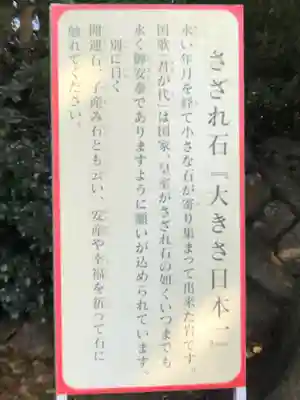 さざれ石『大きさ日本一』
永い年月を経て小さな石が寄り集まって出来た岩です。
国歌、君が代」は国家、皇室がさざれ石の如くいつまでも
永く御安泰でありますように願いが込められています。
別に曰く
開運石、子産み石とも云い、安産や幸福を祈って石に
触れてください。